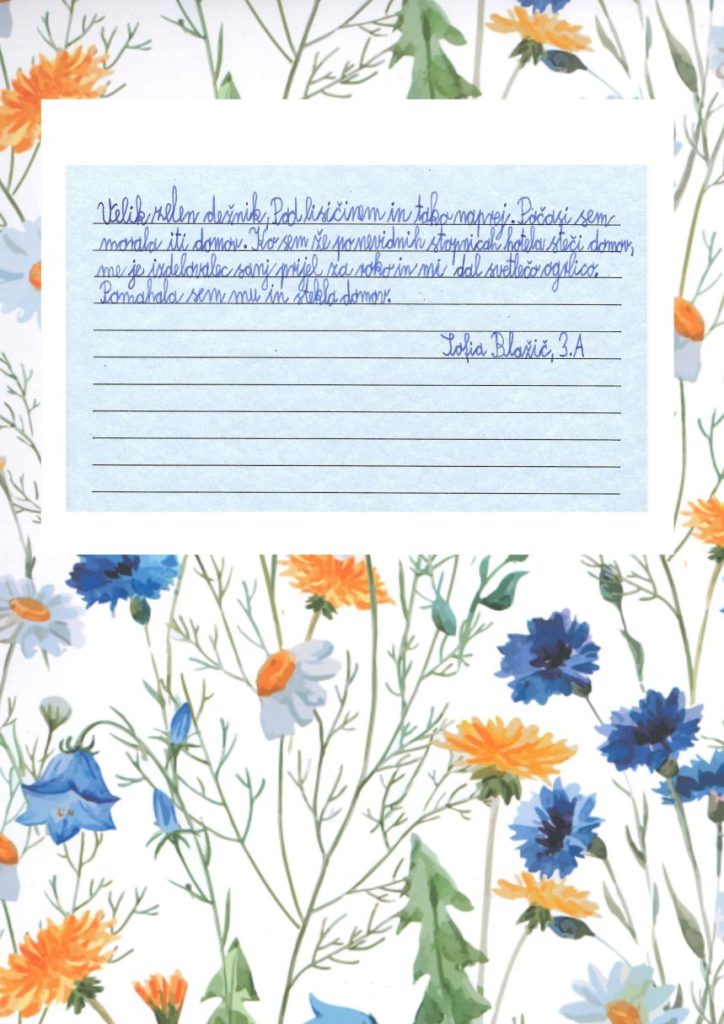 Velik zelen dežnik, Pod lisičirem in tako naprej. Počasi sem
morala iti domov. Ko sem že po nevidnih stopnicah hotela steči domov,
me je izdelovalec sanj prijel za roko in mi dal svetlečo ogrlico.
Pomahala sem mu in stekla domov.
Sofia Blažič, 3.A